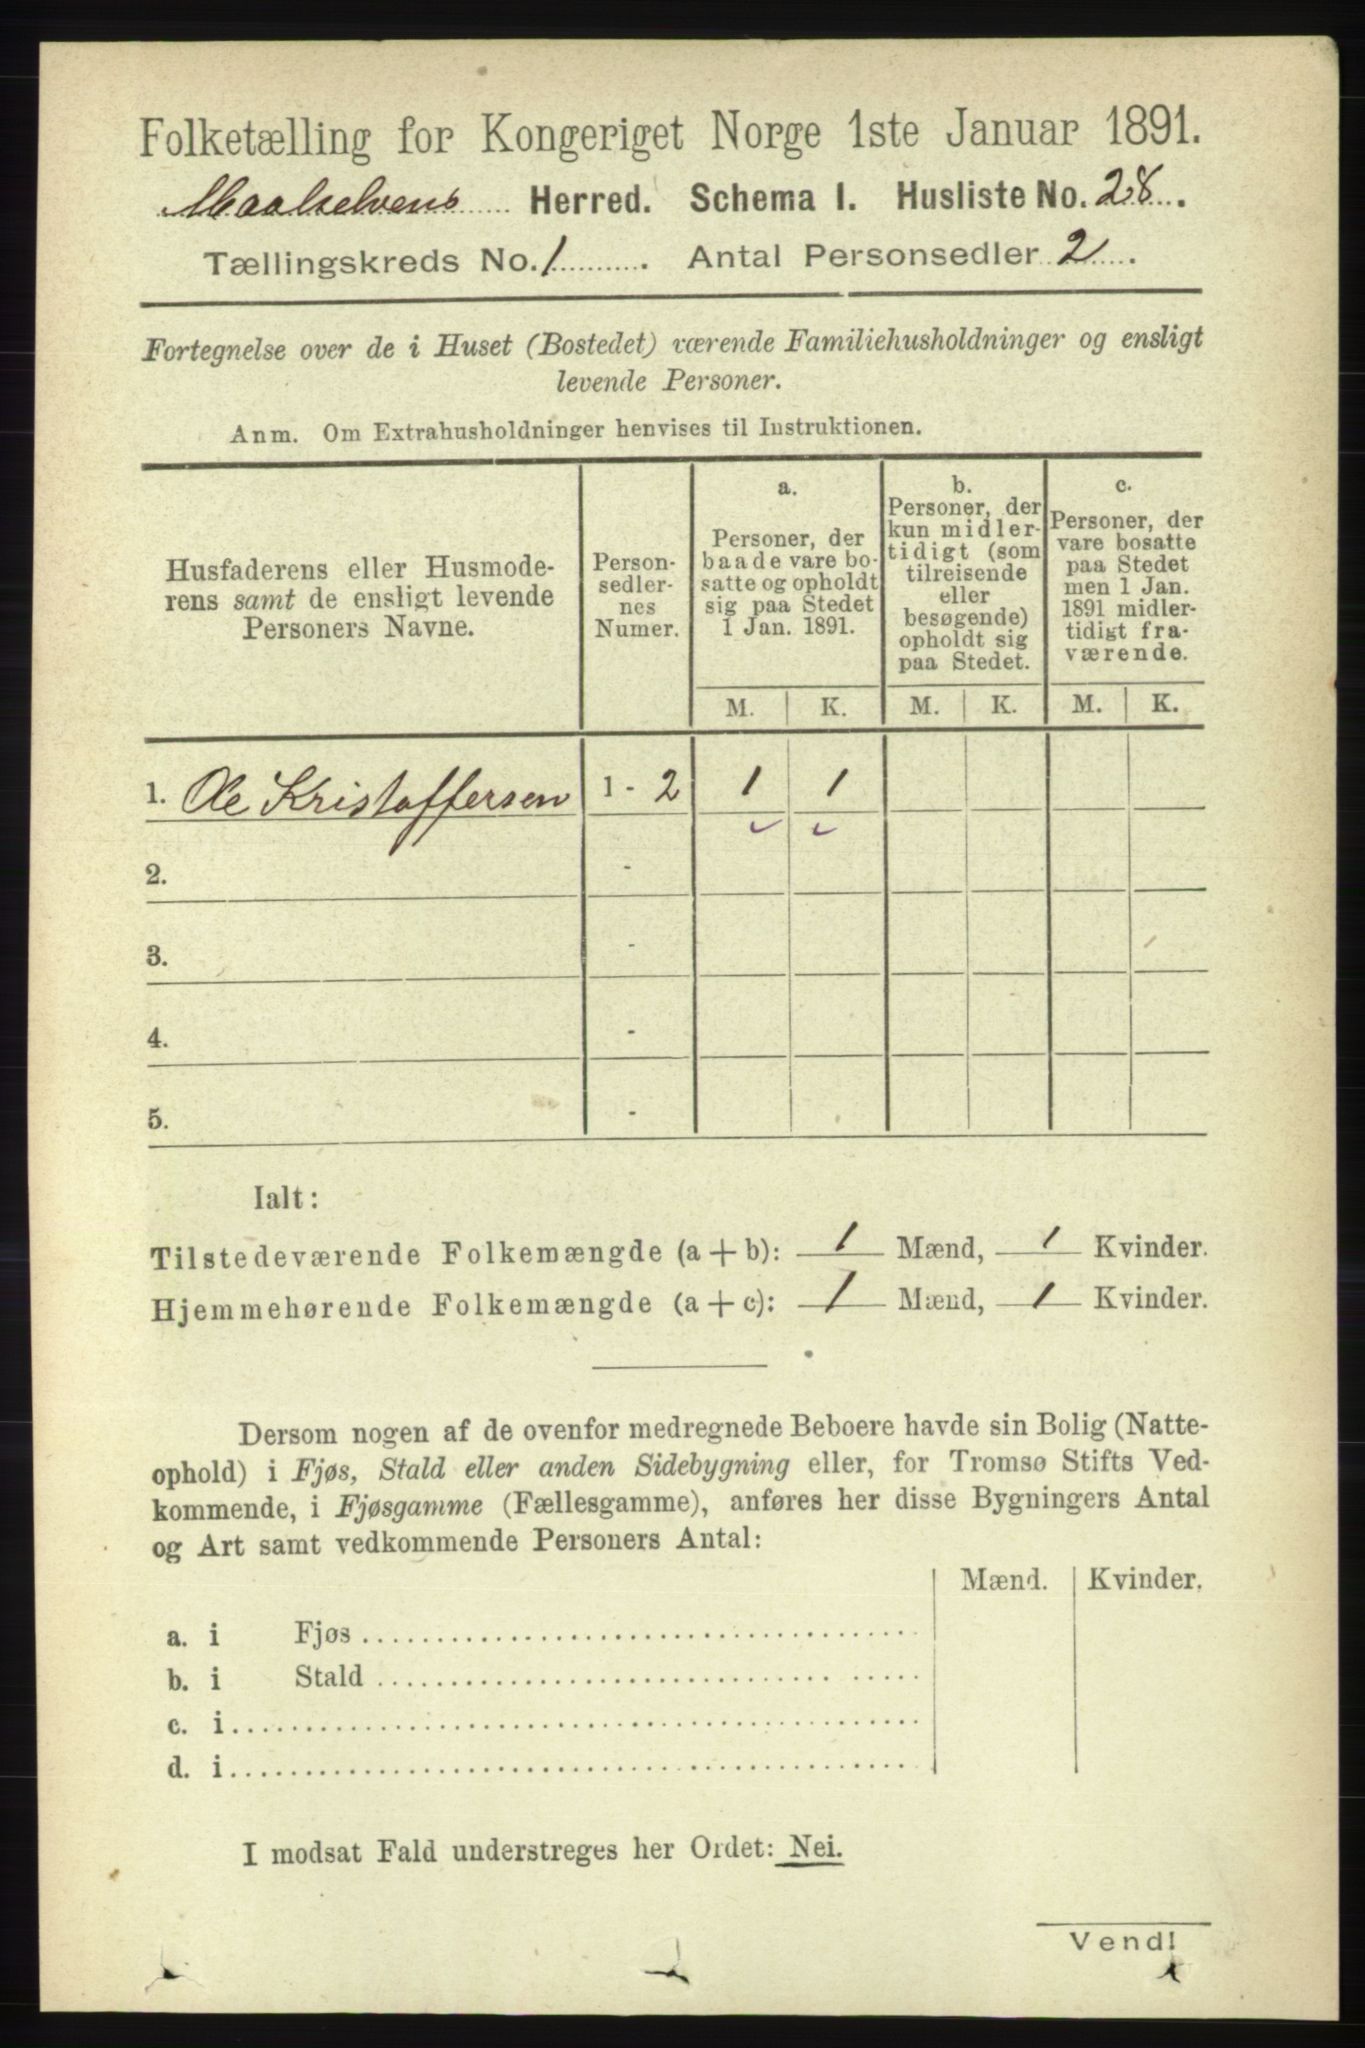 Folketælling for Kongeriget Norge 1ste Januar 1891.
Maalselvens Herred. Schema I. Husliste No. 28.
Tællingskreds No. 1. Antal Personsedler 2.
Fortegnelse over de i Huset (Bostedet) værende Familiehusholdninger og ensligt
levende Personer.
Anm. Om Extrahusholdninger henvises til Instruktionen.
Husfaderens eller Husmode-
rens samt de ensligt levende
Personers Navne.
Person-
sedler-
nes
Numer.
a.
Personer, der
baade vare bo-
satte og opholdt
sig paa Stedet
1 Jan. 1891.
b.
Personer, der
kun midler-
tidigt (som
tilreisende
eller
besøgende)
opholdt sig
paa Stedet.
c.
Personer, der
vare bosatte
paa Stedet
men 1 Jan.
1891 midler-
tidigt fra-
værende.
M. K. M. K. M. K.
1. Ole Kristoffersen 1 - 2 1 1
2. -
3. -
4. -
5. -
Ialt:
Tilstedeværende Folkemængde (a + b): 1 Mænd, 1 Kvinder.
Hjemmehørende Folkemængde (a + c): 1 Mænd, 1 Kvinder.
Dersom nogen af de ovenfor medregnede Beboere havde sin Bolig (Natte-
ophold) i Fjøs, Stald eller anden Sidebygning eller, for Tromsø Stifts Ved-
kommende, i Fjøsgamme (Fællesgamme), anføres her disse Bygningers Antal
og Art samt vedkommende Personers Antal:
Mænd. Kvinder.
a. i Fjøs
b. i Stald
c. i
d. i
I modsat Fald understreges her Ordet: Nei.
Vend!